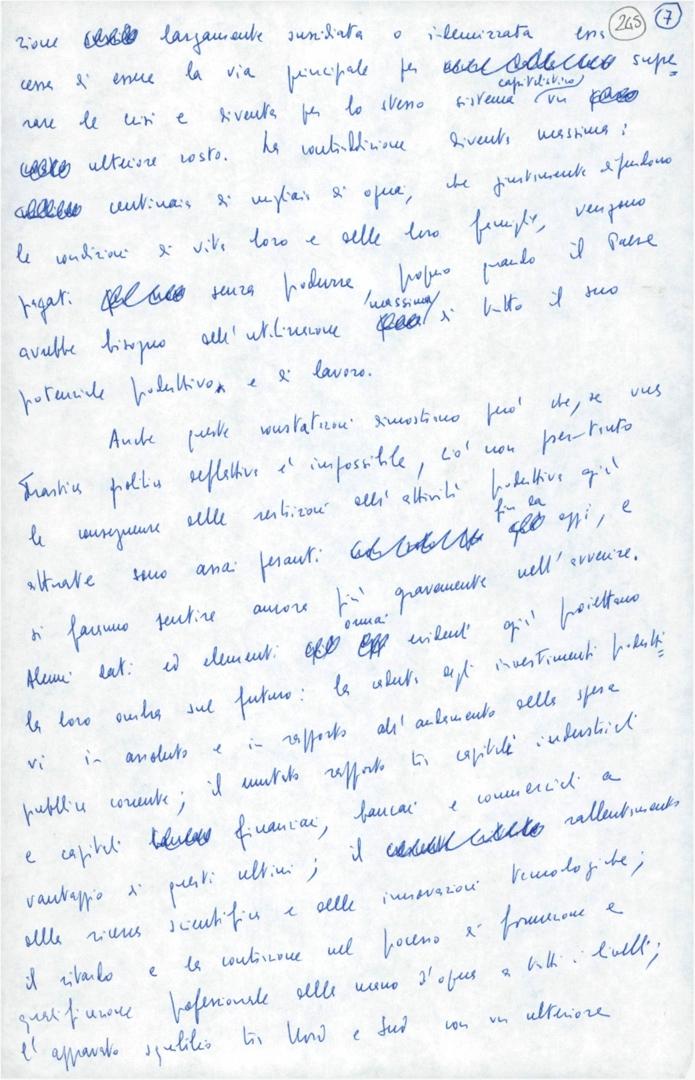 245 7
zione largamente sussidiata o indennizzata essa
cessa di essere la via principale per supe=
rare le crisi e diventa per lo stesso sistema capitalistico un
ulteriore costo. La contraddizione diventa massima:
centinaia di migliaia di operai, che giustamente difendono
le condizioni di vita loro e delle loro famiglie, vengono
pagati senza produrre, proprio quando il Paese
avrebbe bisogno dell'utilizzazione massima di tutto il suo
potenziale produttivo e di lavoro.
Anche queste constatazioni dimostrano però che, se una
drastica politica deflattiva è impossibile, ciò non per-tanto
le conseguenze delle restrizioni dell'attività produttiva già
attuate sono assai pesanti fin da oggi, e
si faranno sentire ancora più gravemente nell'avvenire.
Alcuni dati ed elementi ormai evidenti già proiettano
la loro ombra sul futuro: la caduta degli investimenti produtti=
vi in assoluto e in rapporto all'andamento della spesa
pubblica corrente; il mutato rapporto tra capitali industriali
e capitali finanziari, bancari e commerciali a
vantaggio di questi ultimi; il rallentamento
della ricerca scientifica e delle innovazioni tecnologiche;
il ritardo e la confusione nel processo di formazione e
qualificazione professionale della mano d'opera a tutti i livelli;
l'aggravato squilibrio tra Nord e Sud con un ulteriore